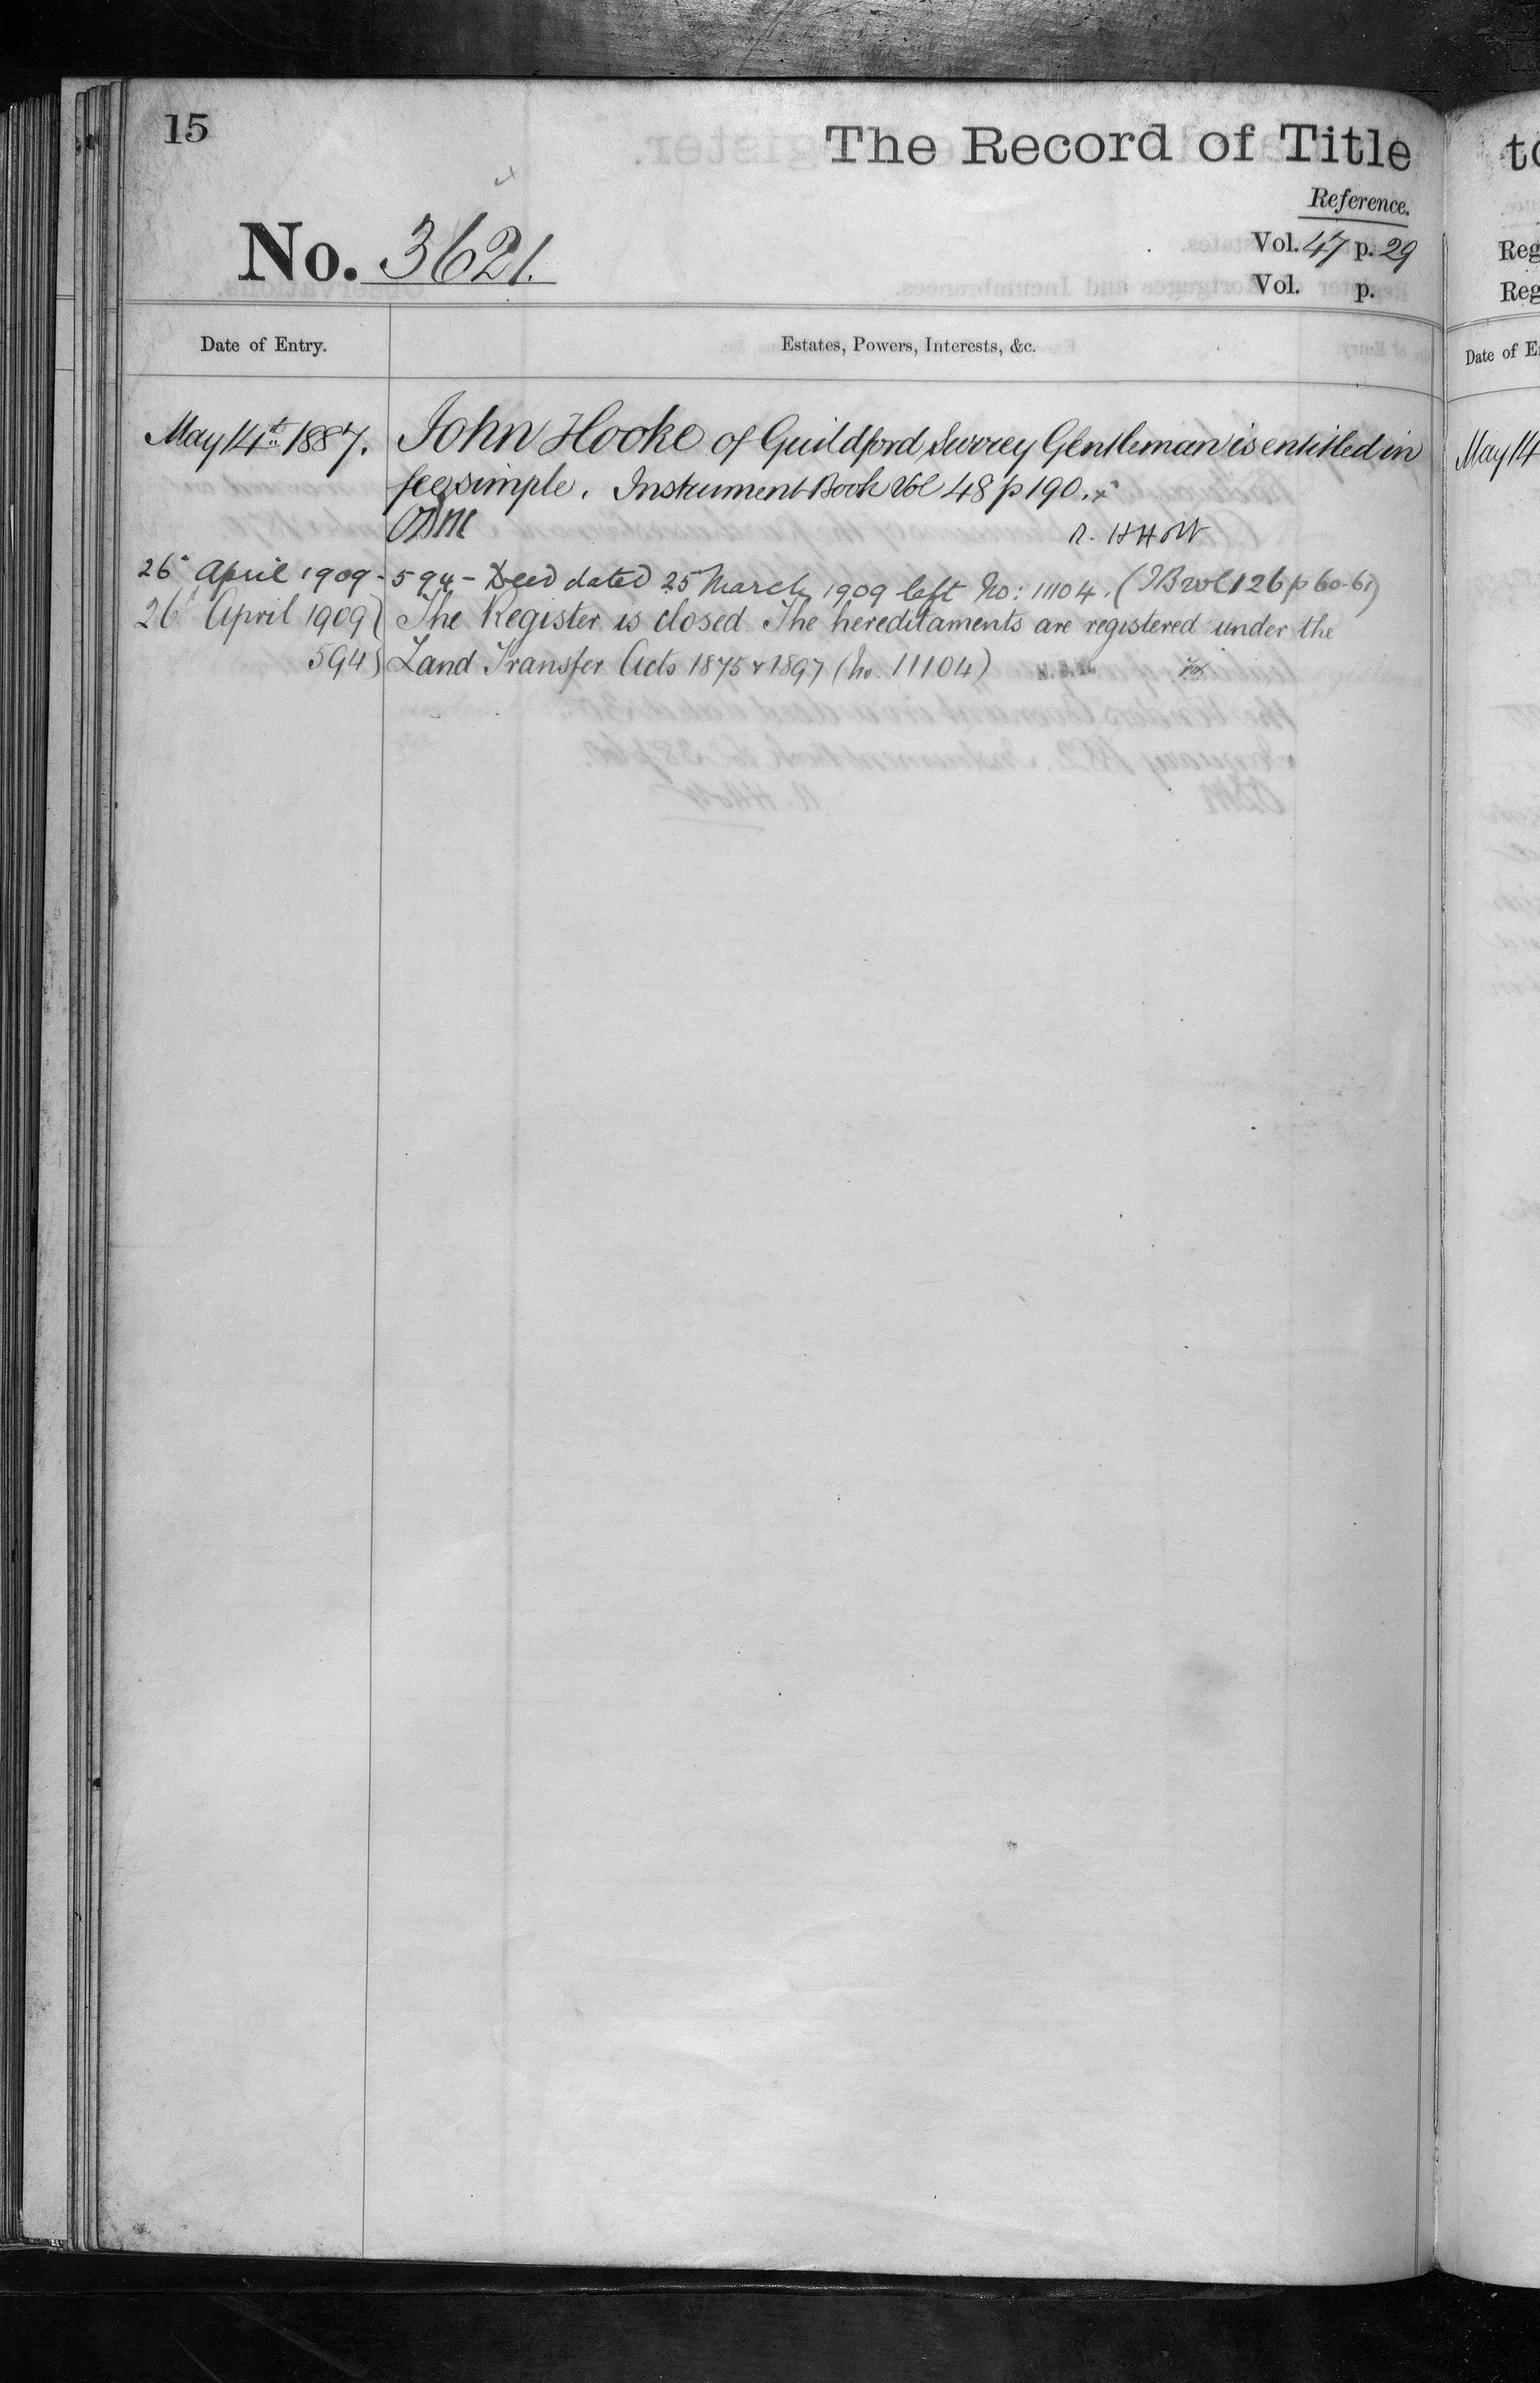 15
The Record of Title
Reference.
No. 3621.
Vol. 47 p. 29
Vol. p.
Date of Entry.
Estates, Powers, Interests, &c.
May 14th 1887.
John Hooke of Guildford Surrey Gentleman is entitled in
fee simple. Instrument Book Vol 48 p 190.
R. HHOW
26 April 1909 - 594 - Deed dated 25 March 1909 left No: 11104. (IB vol 126 p 60-61)
26 April 1909 } The Register is closed. The hereditaments are registered under the
594 } Land Transfer Acts 1875 & 1897 (No. 11104)
to
Reg
Reg
Date of E
May 14